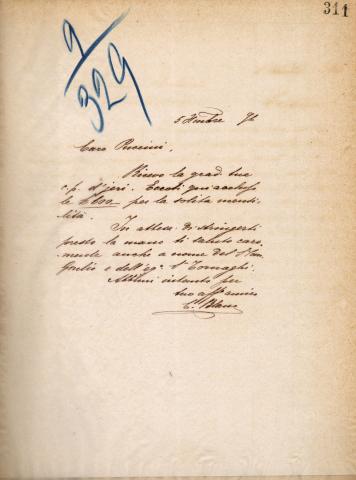 311
9/329
5
Caro Puccini,
Ricevo la grad. tua
d'jeri. Eccoti qui accluse
le per la solita mensi-
lità.
In attesa di stringerti
presto la mano ti saluto caro-
mente anche a nome del
Giulio e dell' Tornaghi.
Abbimi intanto per
tuo aff amico
C. Blanc